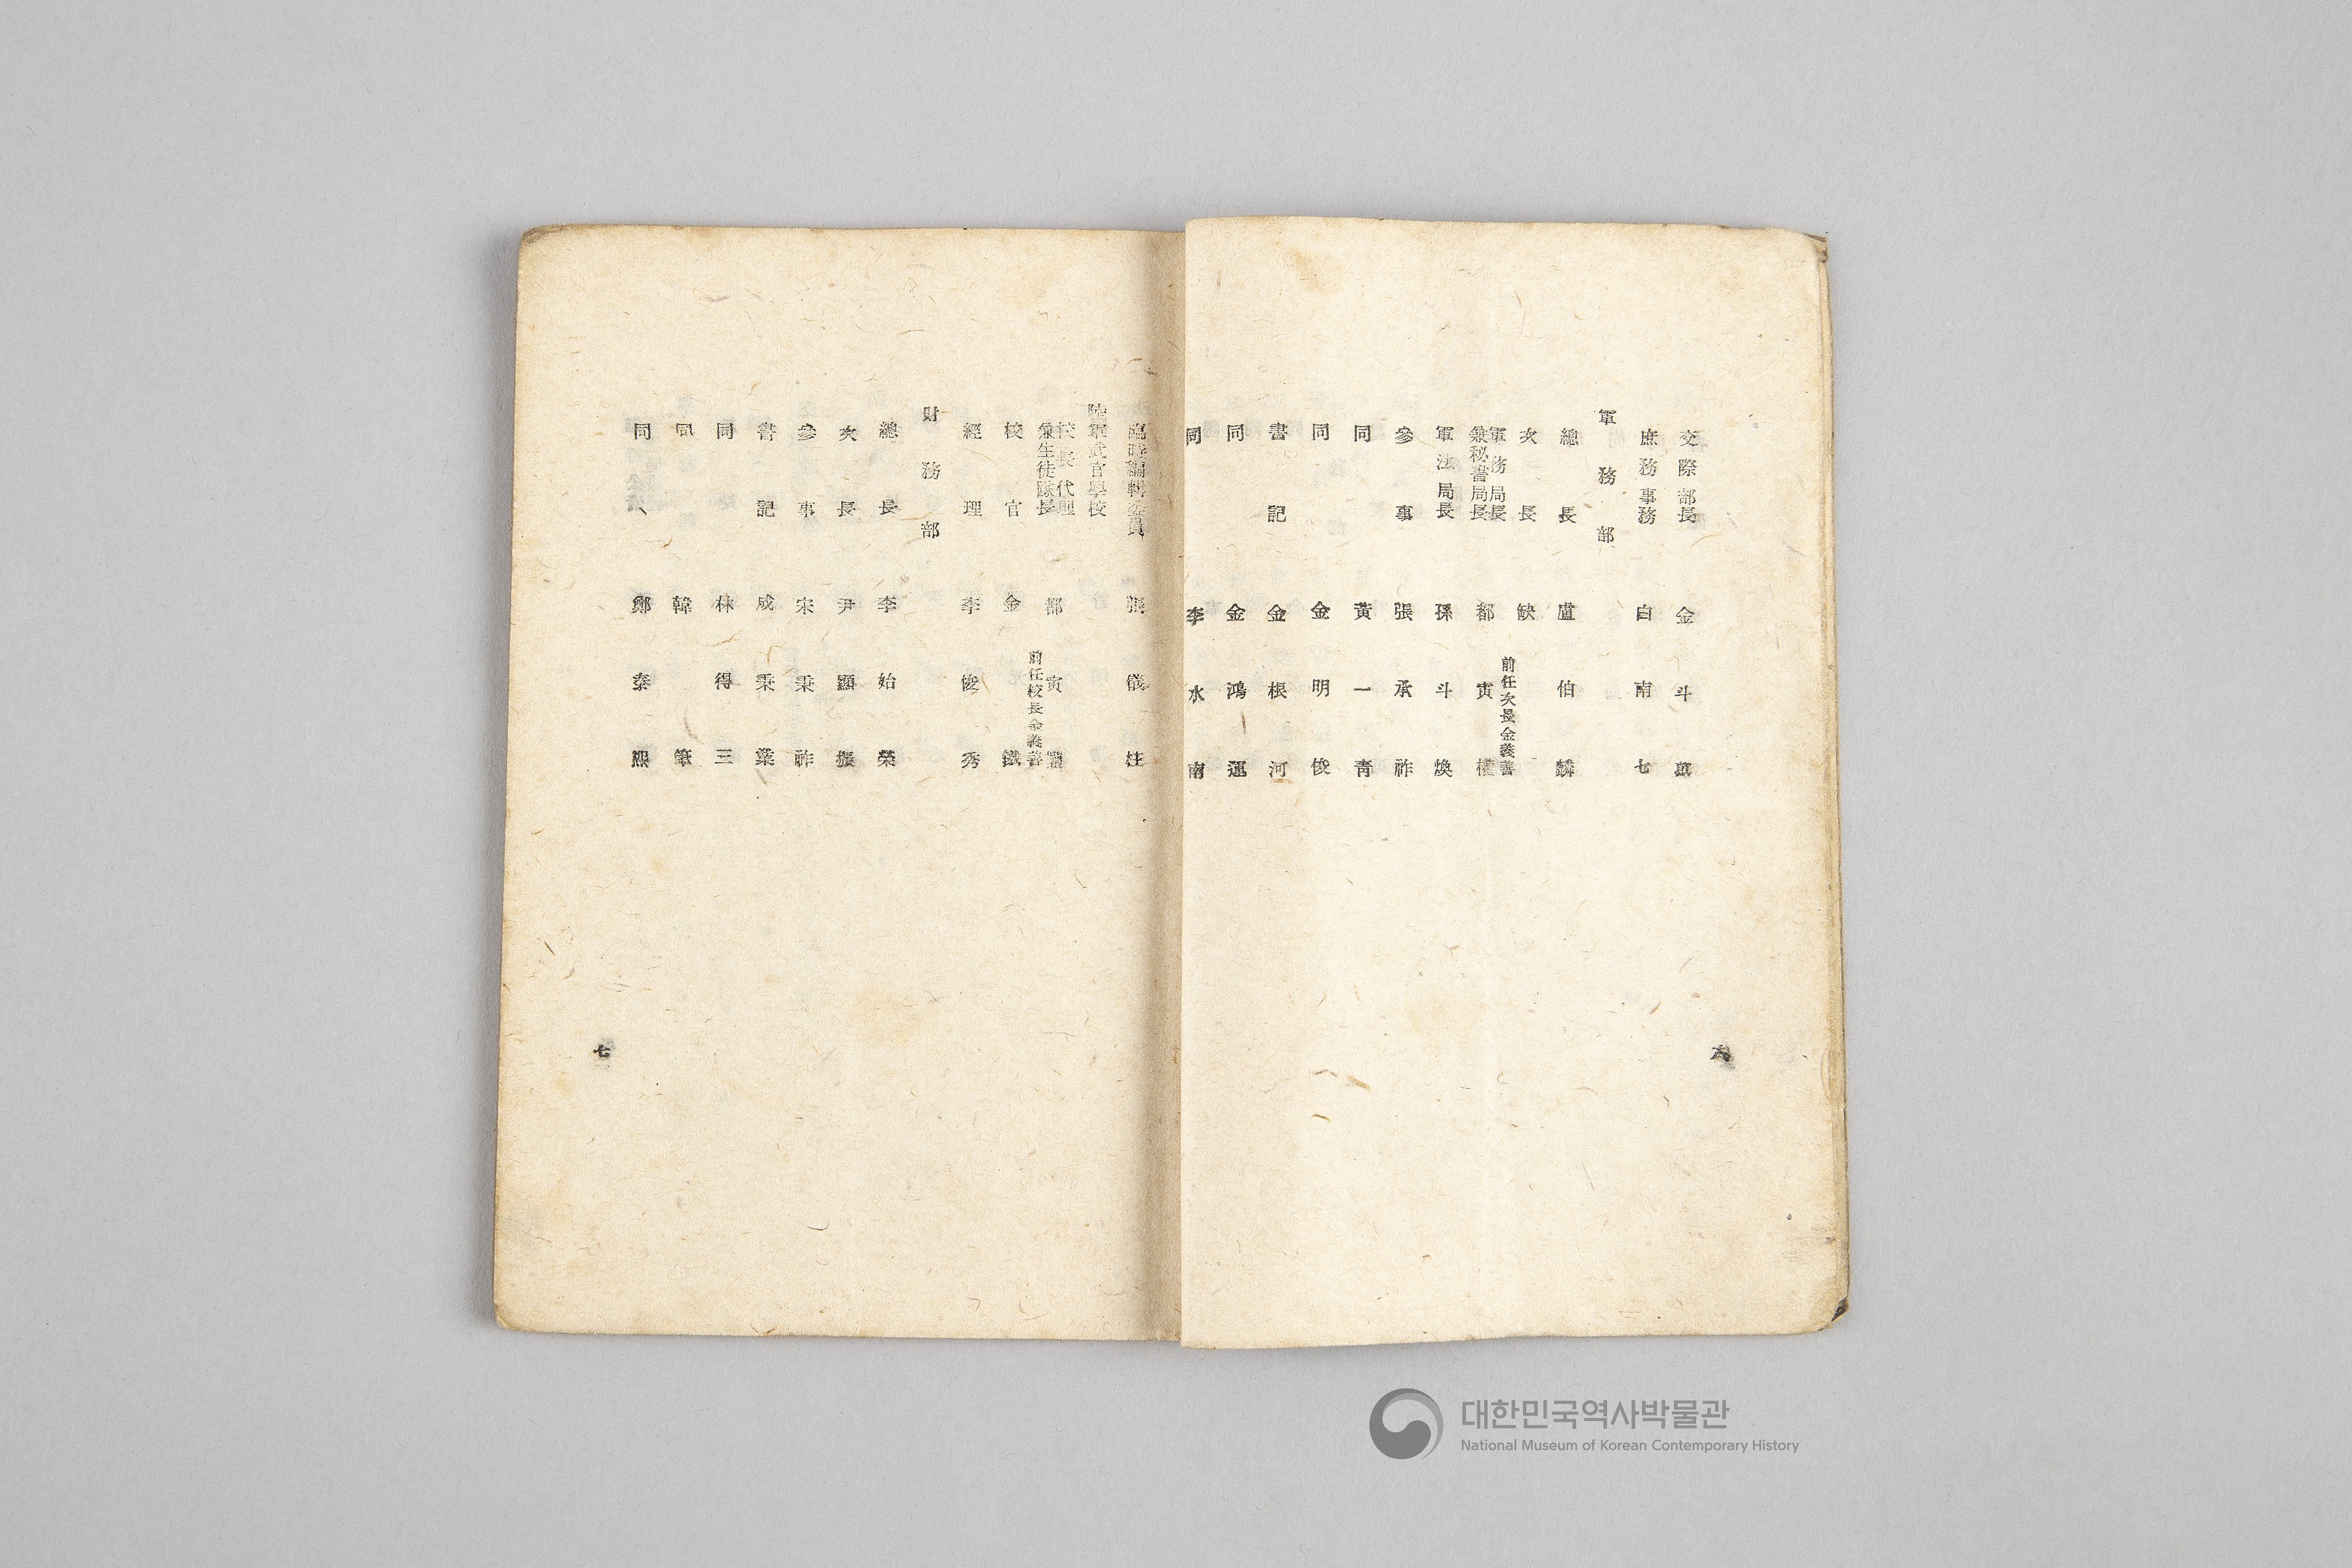 交際部長 金斗萬
庶務事務 白南七
軍務部
總長 盧伯麟
次長 缺
前任次長金羲善
軍務局長
兼秘書局長 都寅權
軍法局長 孫斗煥
參事 張承祚
同 黃一靑
同 金明俊
書記 金根河
同 金鴻運
同 李水南
六
臨時編輯委員 張
陸軍武官學校
校長代理
兼生徒隊長 都寅權
前任校長金羲善
校官 金鐵
經理 李俊秀
財務部
總長 李始榮
次長 尹顯振
參事 宋秉祚
書記 成秉
同 林得三
同 韓筆
同 鄭泰熙
七
대한민국역사박물관
National Museum of Korean Contemporary History